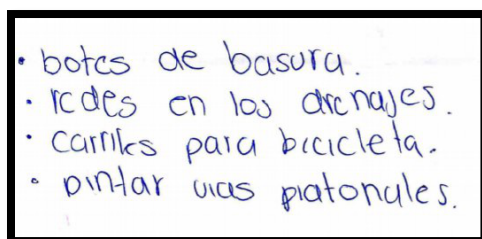 • botes de basura.
• redes en los drenajes.
• carriles para bicicleta.
• pintar vias piatonales.